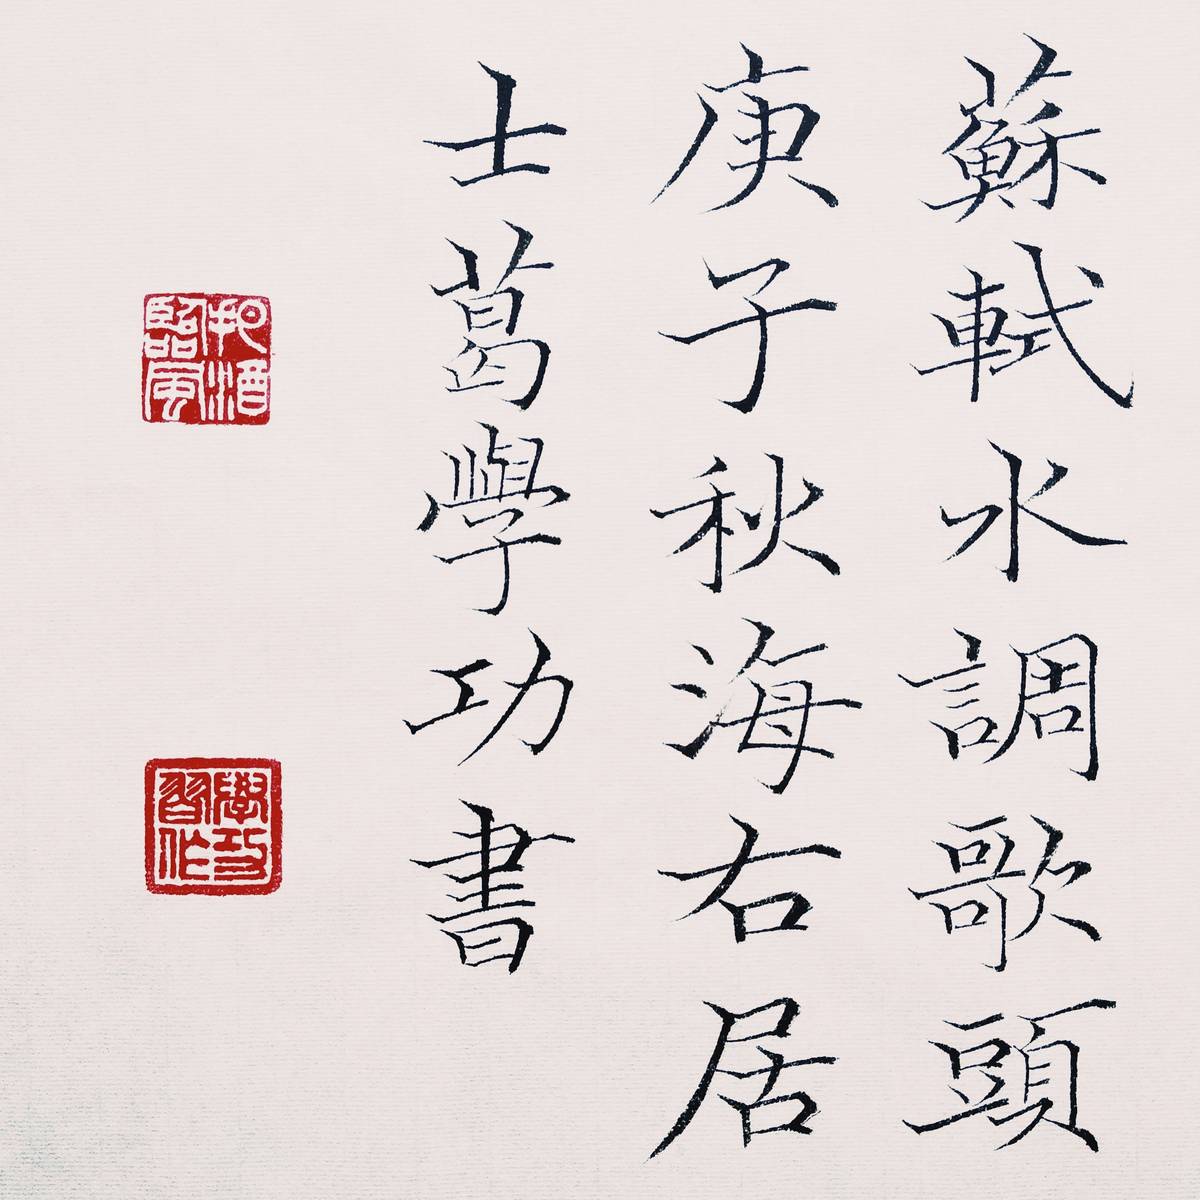 蘇軾水調歌頭
庚子秋海右居
士葛學功書
把酒臨風
學功習作